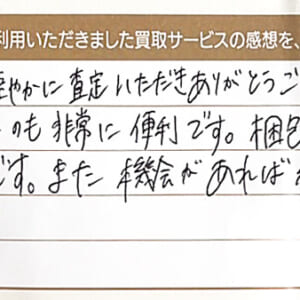 利用いただきました買取サービスの感想を、
やかに査定いただきありがとうご
のも非常に便利です。梱包
です。また機会があれば